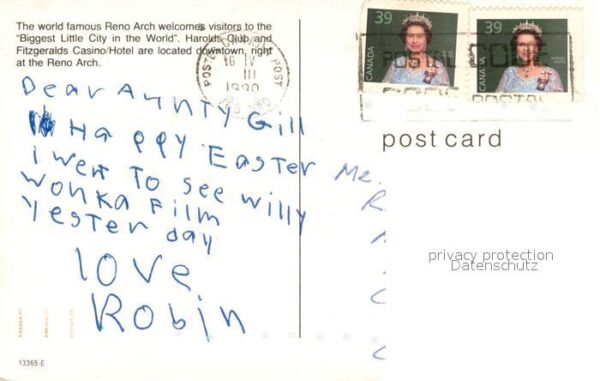 The world famous Reno Arch welcomes visitors to the
"Biggest Little City in the World". Harolds Club and
Fitzgeralds Casino/Hotel are located downtown, right
at the Reno Arch.
Dear Aunty Gill
Happy Easter
i went To see Willy
Wonka Film
Yester day
love
Robin
13365-E
POST
POST
16 IV
III
1990
39
CANADA
39
CANADA
POSTAL CODE
POSTAL
post card
Me.
privacy protection
Datenschutz